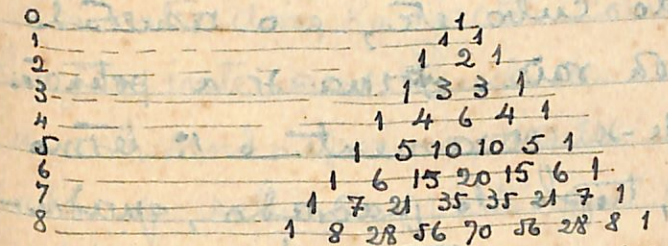 0 1
1 1 1
2 1 2 1
3 1 3 3 1
4 1 4 6 4 1
5 1 5 10 10 5 1
6 1 6 15 20 15 6 1
7 1 7 21 35 35 21 7 1
8 1 8 28 56 70 56 28 8 1